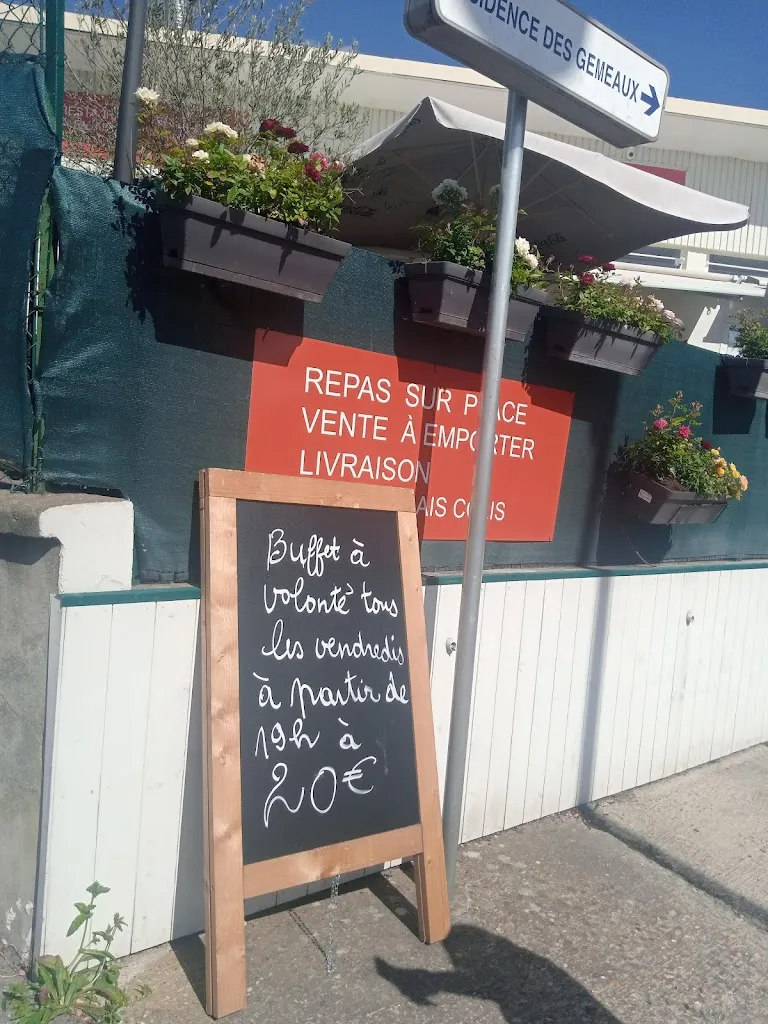 SIDENCE DES GEMEAUX
REPAS SUR PLACE
VENTE À EMPORTER
LIVRAISON
AIS COLIS
Buffet à
volonté tous
les vendredis
à partir de
19h à
20€